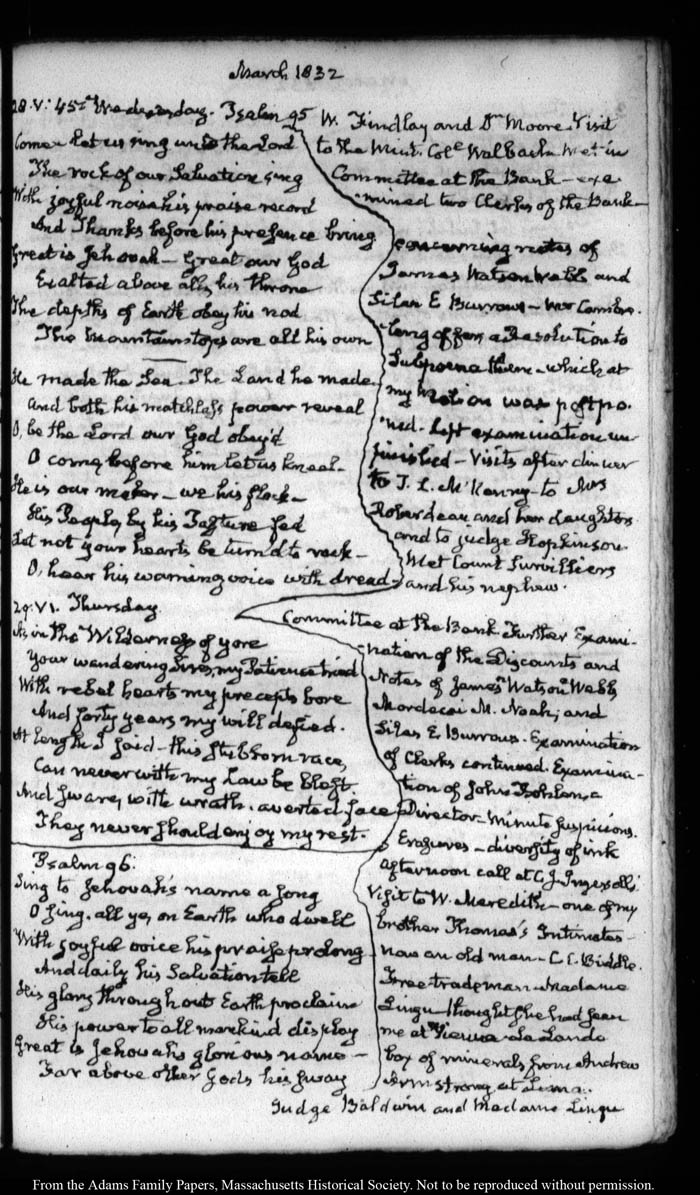 March 1832
28. V: 45m Wednesday. Psalm 95
Come let us sing unto the Lord
The rock of our Salvation sing
With joyful noise his praise record
And Thanks before his presence bring
Great is Jehovah – Great our God
Exalted above all, his throne
The depths of Earth obey his nod
The mountain tops are all his own
He made the Sea. The Land he made,
And both his matchless power reveal
O, be the Lord our God obey'd
O come, before him let us kneel –
He is our maker – we his flock –
His People, by his Pasture fed
Let not your hearts be turn'd to rock –
O, hear his warning voice with dread –
W. Findlay and Dr. Moore. Visit
to the Mint. Cole Walbach. Met in
Committee at the Bank – exa-
mined two Clerks of the Bank –
concerning notes of
James Watson Webb and
Silas E Burrows – Mr Cambre-
leng offers a Resolution to
Subpoena them – which at
my Motion was postpo-
ned. Left examination un-
finished – Visits after dinner
to T. L. McKenny – to Mrs
Roberdeau and her daughters
and to judge Hopkinson.
Met Count Survilliers
and his nephew.
29. VI. Thursday
As in the Wilderness of yore
Your wandering Sires, my Patience tried
With rebel hearts my precepts bore
And forty years my will defied.
At length I said – this stubborn race,
Can never with my Law be blest.
And sware, with wrath-averted face
They never should enjoy my rest.
Psalm 96.
Sing to Jehovah's name a song
O sing, all ye, on Earth who dwell
With joyful voice his praise prolong
And daily his Salvation tell
His glory throughout Earth proclaim
His power to all mankind display
Great is Jehovah's glorious name –
Far above other Gods his sway
Committee at the Bank Further Exami-
nation of the Discounts and
Notes of James Watson Webb,
Mordecai M. Noah, and
Silas E. Burrows. Examination
of Clerks continued. Examina-
tion of John Bohlen, a
Director – Minute suspicions.
Erasures – diversity of ink
afternoon call at C. J. Ingersoll's
Visit to W. Meredith – one of my
brother Thomas's Intimates –
now an old man – C. C. Biddle.
Free trade man – Madame
Lingu thought she had seen
me at Vienna – La Lande
box of minerals from Andrew
Armstrong at Lima.
Judge Baldwin and Madame Lingu
From the Adams Family Papers, Massachusetts Historical Society. Not to be reproduced without permission.